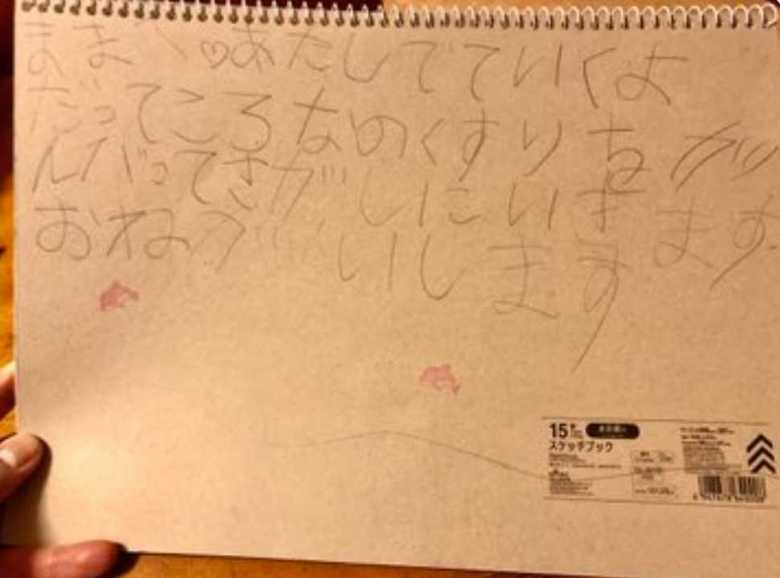 まま、♡あたしでていくよ
だってころなのくすりをが
んばってさがしにいきます
おねがいします
15
スケッチブック